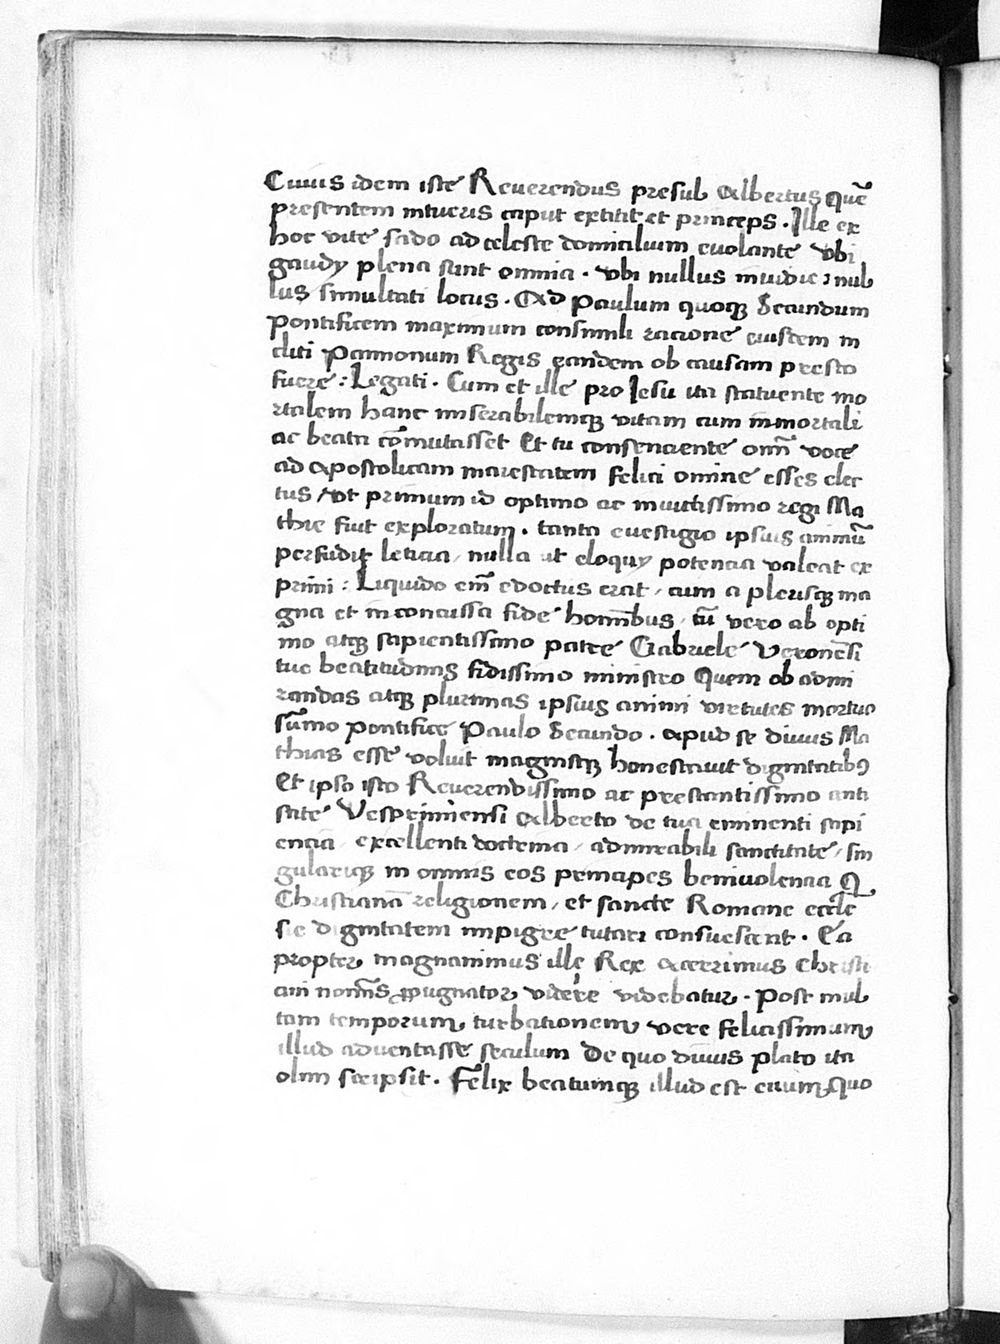 Cuius idem iste Reuerendus presul Albertus quē
presentem intueris caput extitit et princeps. Ille ex
hoc vite sado ad celeste domicilium euolante vbi
gaudy plena sunt omnia. vbi nullus inuidie; nul
lus simultati locus. Ad Paulum quoqꝫ Secundum
Pontificem maximum consimili racione eiusdem in
cliti Pannonum Regis eandem ob causam presto
fuere: Legati. Cum et ille pro Iesu ita statuente mo
rtalem hanc miserabilemqꝫ vitam cum inmortali
ac beata cōmutasset Et tu consenciente omī voce
ad apostolicam maiestatem felici omine esses elec
tus / vt primum id optimo ac inuictissimo regi Ma
thie fiut exploratum. tanto euestigio ipsius animū
perfudit leticia / nulla ut eloquy potencia valeat ex
primi: Liquido em̄ edoctus erat / cum a plerisqꝫ ma
gna et inconcussa fide hominibus / tū vero ab opti
mo atqꝫ sapientissimo patre Gabriele Veronēsi
tue beatitudinis fidissimo ministro Quem ob admi
randas atqꝫ plurimas ipsius animi virtutes mortuo
sūmo pontifice Paulo Secundo. apud se diuus Ma
thias esse voluit magnisqꝫ honestauit dignitatibꝰ
Et ipso isto Reuerendissimo ac prestantissimo anti
stite Vesprimiensi Alberto de tua eminenti sapi
encia / excellenti doctrina / admirabili sanctitate / sin
gulariqꝫ in omnis eos principes beniuolencia Q
Christianā religionem / et sancte Romane eccle
sie dignitatem impigre tutari consuescant. Ea
propter magnanimus ille Rex acerrimus Christi
ani nominis ꝓpugnator videre videbatur. Post mul
tam temporum turbationem vere felicissimum
illud aduentasse seculum De quo diuus plato ita
olim scripsit. Felix beatumqꝫ illud est euum quo